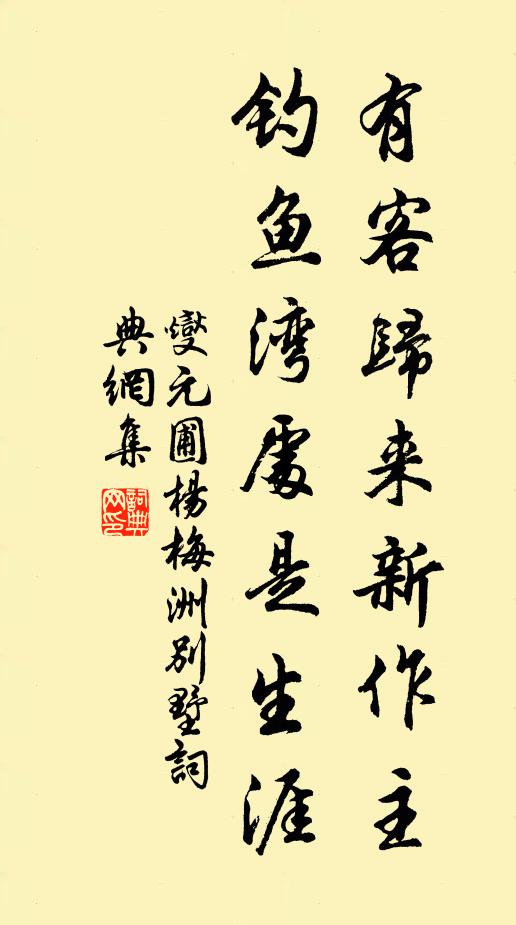 有客歸来新作主
钓鱼湾處是生涯
燮元圃杨梅洲别墅詞
典網集
詞典
网印